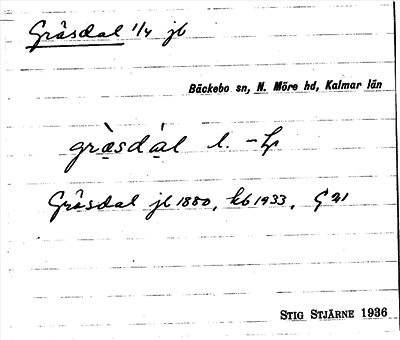 Gräsdal 1/4 jb
Bäckebo sn, N. Möre hd, Kalmar län
gräsdal l. -
Gräsdal jb 1880, kb 1933, G 21
STIG STJÄRNE 1936